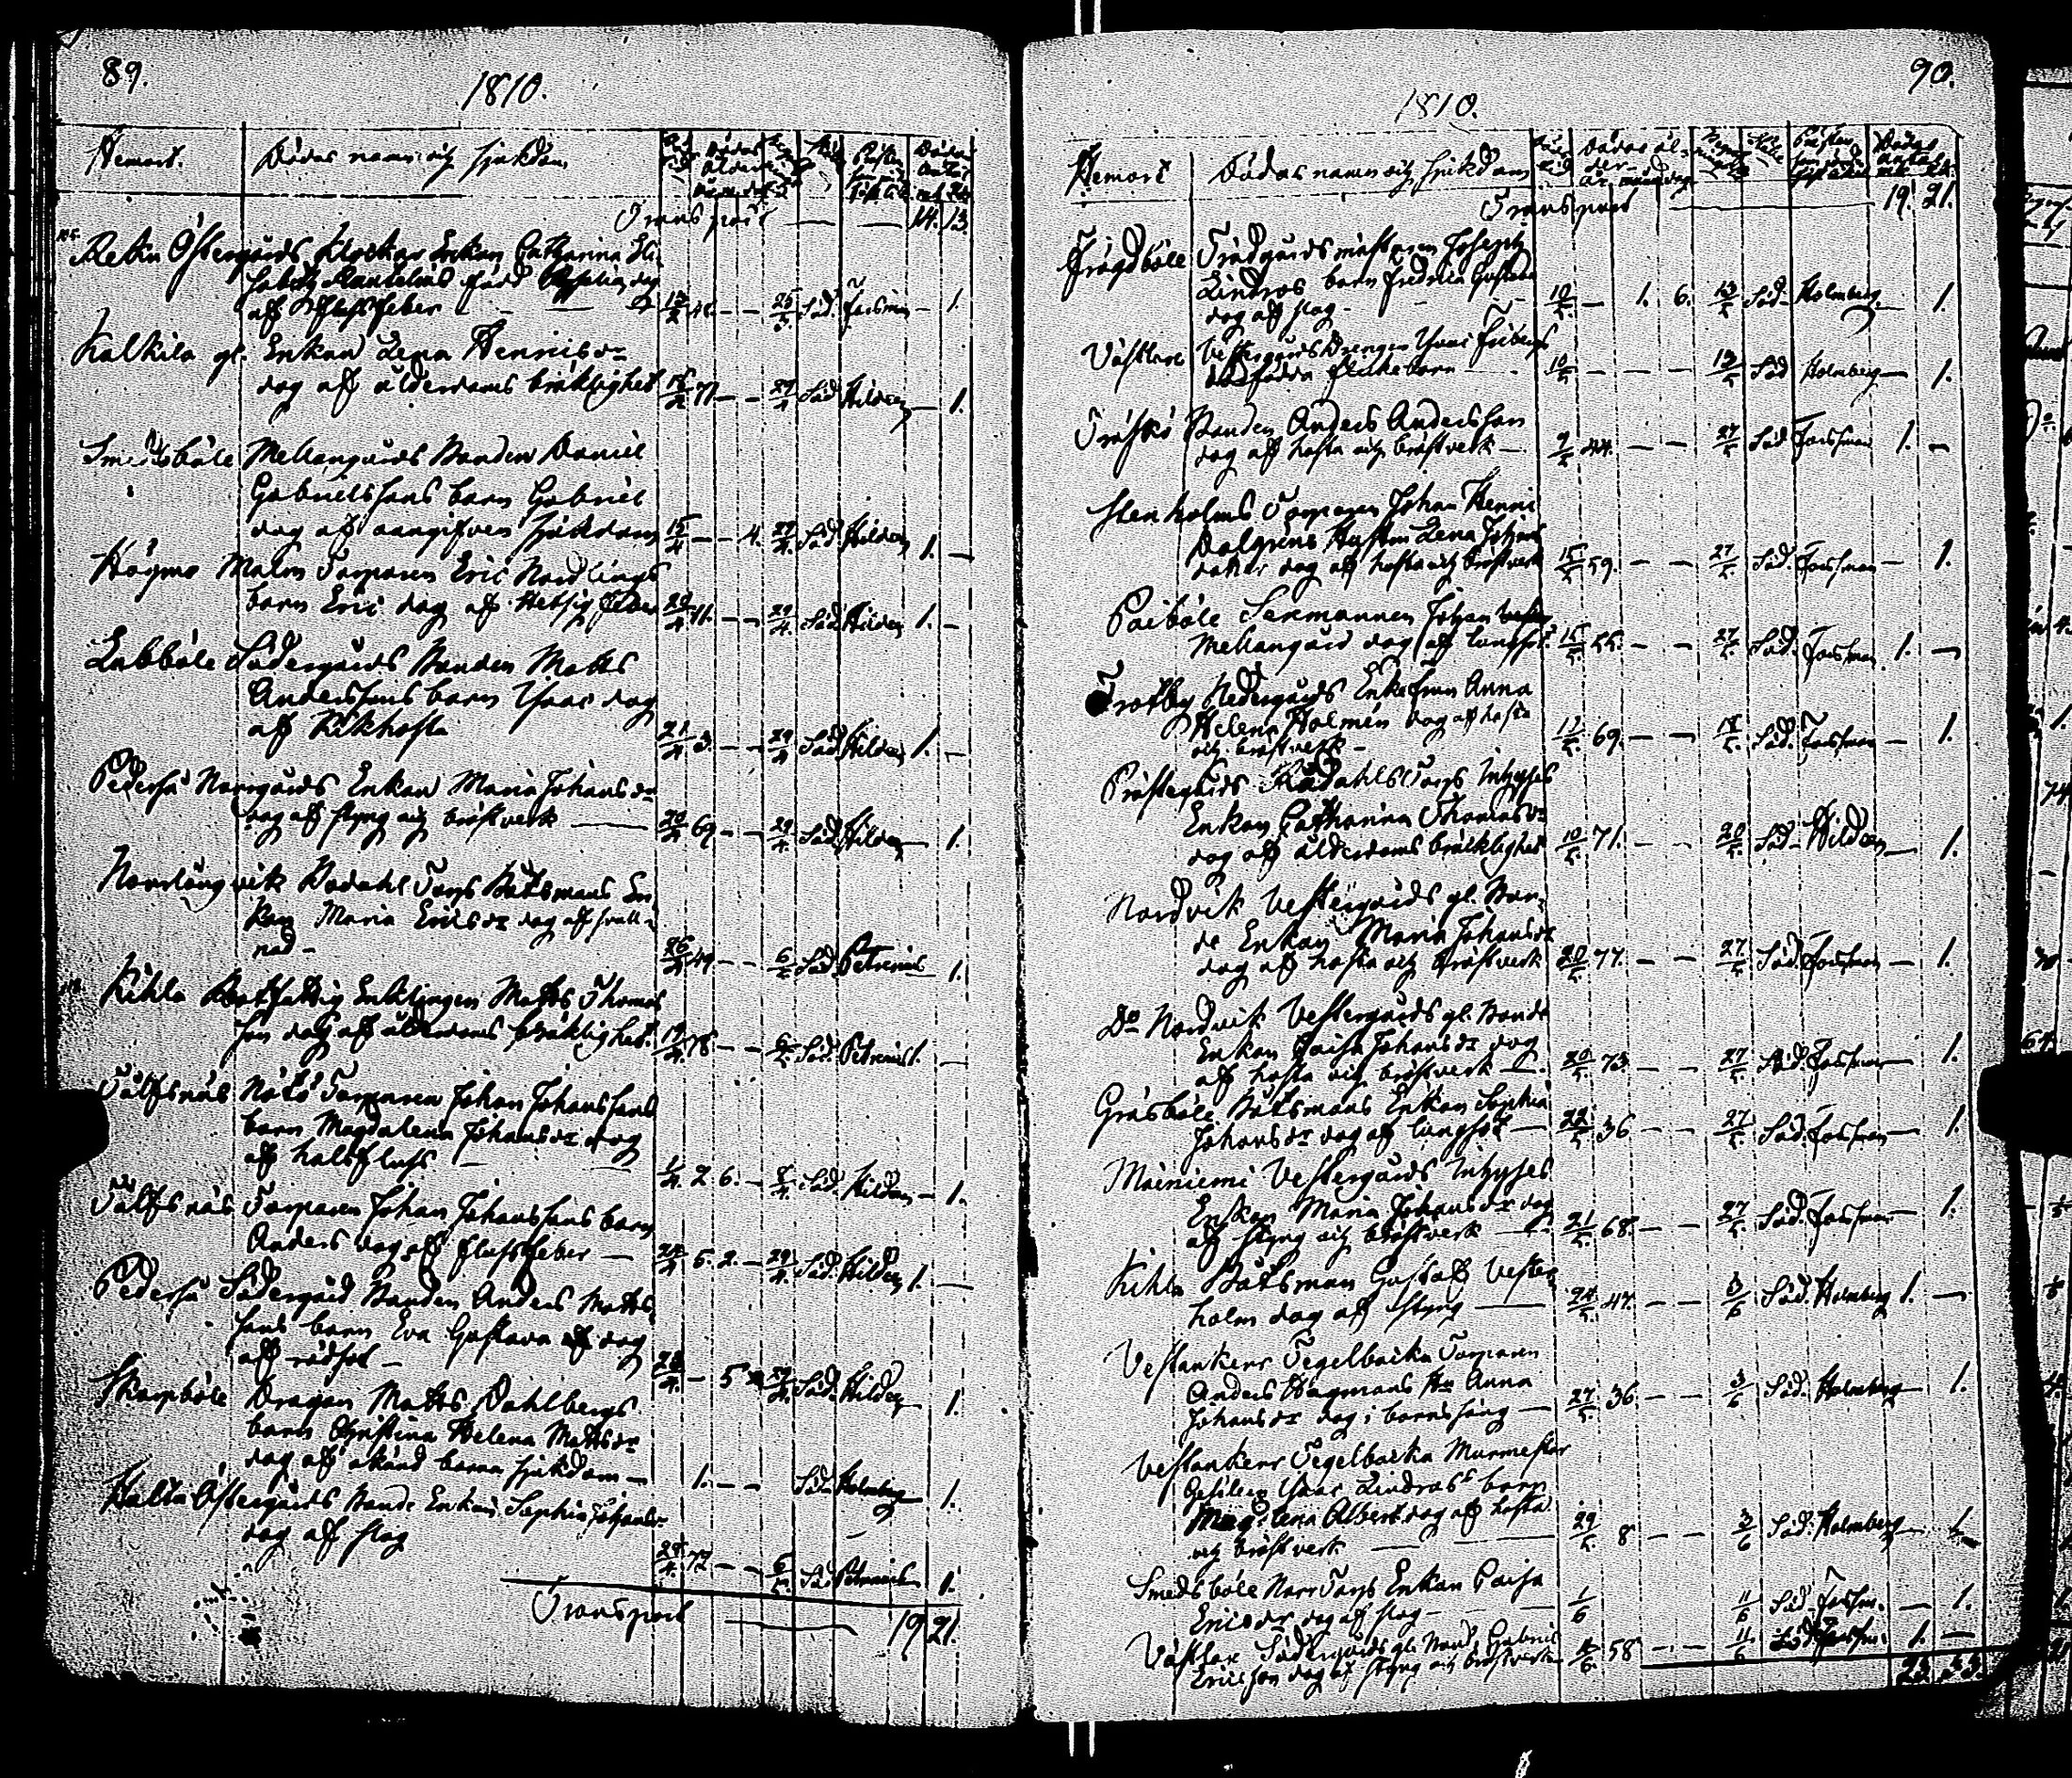 89.
1810.
Hemort.
Dödas namn och sjukdom
Transport — — 14. 13.
Östergårds Klockar Enkan Catharina Eli-
sabeth född dog
af Flussfeber — 25/3 Söd. Forsman — 1.
Kalkila gl. Enkan Lena Hennicsdr
dog af ålderdoms bräklighet 77 — — 27/4 Söd. Hilden — 1.
Smedsböle Mellangårds Bonden Daniel
Gabrielssons barn Gabriel
dog af oangifven sjukdom 15/4 — — 4. 27/4 Söd. Hilden 1. —
Högmo Malm Torparen Eric Nordlings
barn Eric dog af Hetsig feber 20/4 11. — — 29/4. Söd. Hilden 1. —
Labböle Södergårds Bonden Matts
Anderssons barn Isaac dog
af Kikhosta 21/4 3. — — 29/4 Söd. Hilden 1. —
Pederså Norrgårds Enkan Maria Johansdr
dog af styng och bröstverk — 20/4 69 — — 29/4. Söd. Hilden — 1.
Norrlångvik Dodahl Torps Båtsmans En-
kan Maria Ericsdr dog af svull-
nad — 26/4 49 — — 6/5 Söd. Petrenius — 1.
Kihla Enklingen Matts Thomas
son dog af ålderdoms bräklighet. 19/4. 78 — — 6/5. Söd. Petrenius 1. —
Tålfsnäs Nötö Torparen Johan Johanssons
barn Magdalena Johansdr dog
af halsfluss — 1/4. 2. 6. — 8/4. Söd. Hilden — 1.
Tålfsnäs Torparen Johan Johanssons barn
Anders dog af flussfeber — 24/4 5. 2. — 29/4 Söd. Hilden 1. —
Pederså Södergård Bonden Anders Matts
sons barn Eva Gustava dog
af rödsot — 28/4. — 5 29/4. Söd. Hilden 1.
Skarpböle Drängen Matts Dahlbergs
barn Christina Helena Mattsdr
dog af okänd barna sjukdom — 1. — — Söd. Holmberg 1.
Östergårds Bonde Enkan Sophia Johansdr
dog af slag 77 — — 6/5. Söd. Petrenius 1.
Transport — 19 21.
90.
1810.
Hemort
Dödas namn och sjukdom
Transport — 19. 21.
Trägdböle Trädgårdsmästaren Joseph
Lindros barn Fredrica Gustava
dog af slag — 10/5. — 1. 6. 13/5 Söd. Holmberg 1.
Västlax Vestergårds Drengen Isaac Fribergs
dödfödda flickebarn — 10/5 — — — 13/5 Söd Holmberg — 1.
Träskö Bonden Anders Andersson
dog af hosta och bröstverk — 9/5 44. — — 27/5 Söd Forsman 1. —
Stenholms Torparen Johan Henric
Dalgrens Hustru Lena Johans
dotter dog af hosta och bröstverk 15/5 59. — — 27/5. Söd. Forsman — 1.
Paiböle Sexmannen Johan
Mellangård dog af lungsot. 15/5. 55. — — 27/5. Söd. Forsman. 1. —
Trotby Nedergårds Enkefrun Anna
Helena Holmén dog af hosta
och bröstverk — 69. — — Söd. Forsman — 1.
Prästegårds Rådahls Torps Inhyses
Enkan Catharina Thomasdr
dog af ålderdoms bräklighet 10/5. 71. — — 20/5. Söd. Hilden — 1.
Nordvik Vestergårds gl. Bon-
de Enkan Maria Johansdr
dog af hosta och bröstverk 20/5 77. — — 27/5 Söd. Forsman — 1.
Do Nordvik Vestergårds gl. Bonde
Enkan Caisa Johansdr dog
af hosta och bröstverk — 20/5. 73. — — 27/5. Söd. Forsman — 1.
Gräsböle Båtsmans Enkan Sophia
Johansdr dog af lungsot — 22/5 36 — — 27/5. Söd. Forsman — 1.
Mainiemi Vestergårds Inhyses
Enkan Maria Johansdr dog
af styng och bröstverk — 21/5. 68. — — 27/5. Söd. Forsman — 1.
Kihla Båtsman Gustaf Vester
holm dog af styng — 24/5. 47. — — 3/6 Söd. Holmberg 1. —
Vestankerr Tegelbacka Torparen
Anders Hagmans Hu Anna
Johansdr dog i barnsäng — 27/5. 36. — — 3/6 Söd. Holmberg — 1.
Vestankerr Tegelbacka Murmestar
Gesällen Isaac Lindros barn
Magdlena Albert. dog af hosta
och bröstverk — 29/5 8 — — 3/6 Söd. Holmberg 1.
Smedsböle Norr Torp Enkan Caisa
Ericsdr dog af slag — 1/6 11/6 Söd. Forsm. — 1.
Västlax Södergårds gl. Bond. Gabriel
Ericsson dog af styng och bröstverk 58 — — 11/6 Söd. Forsm. 1. —
23. 33.